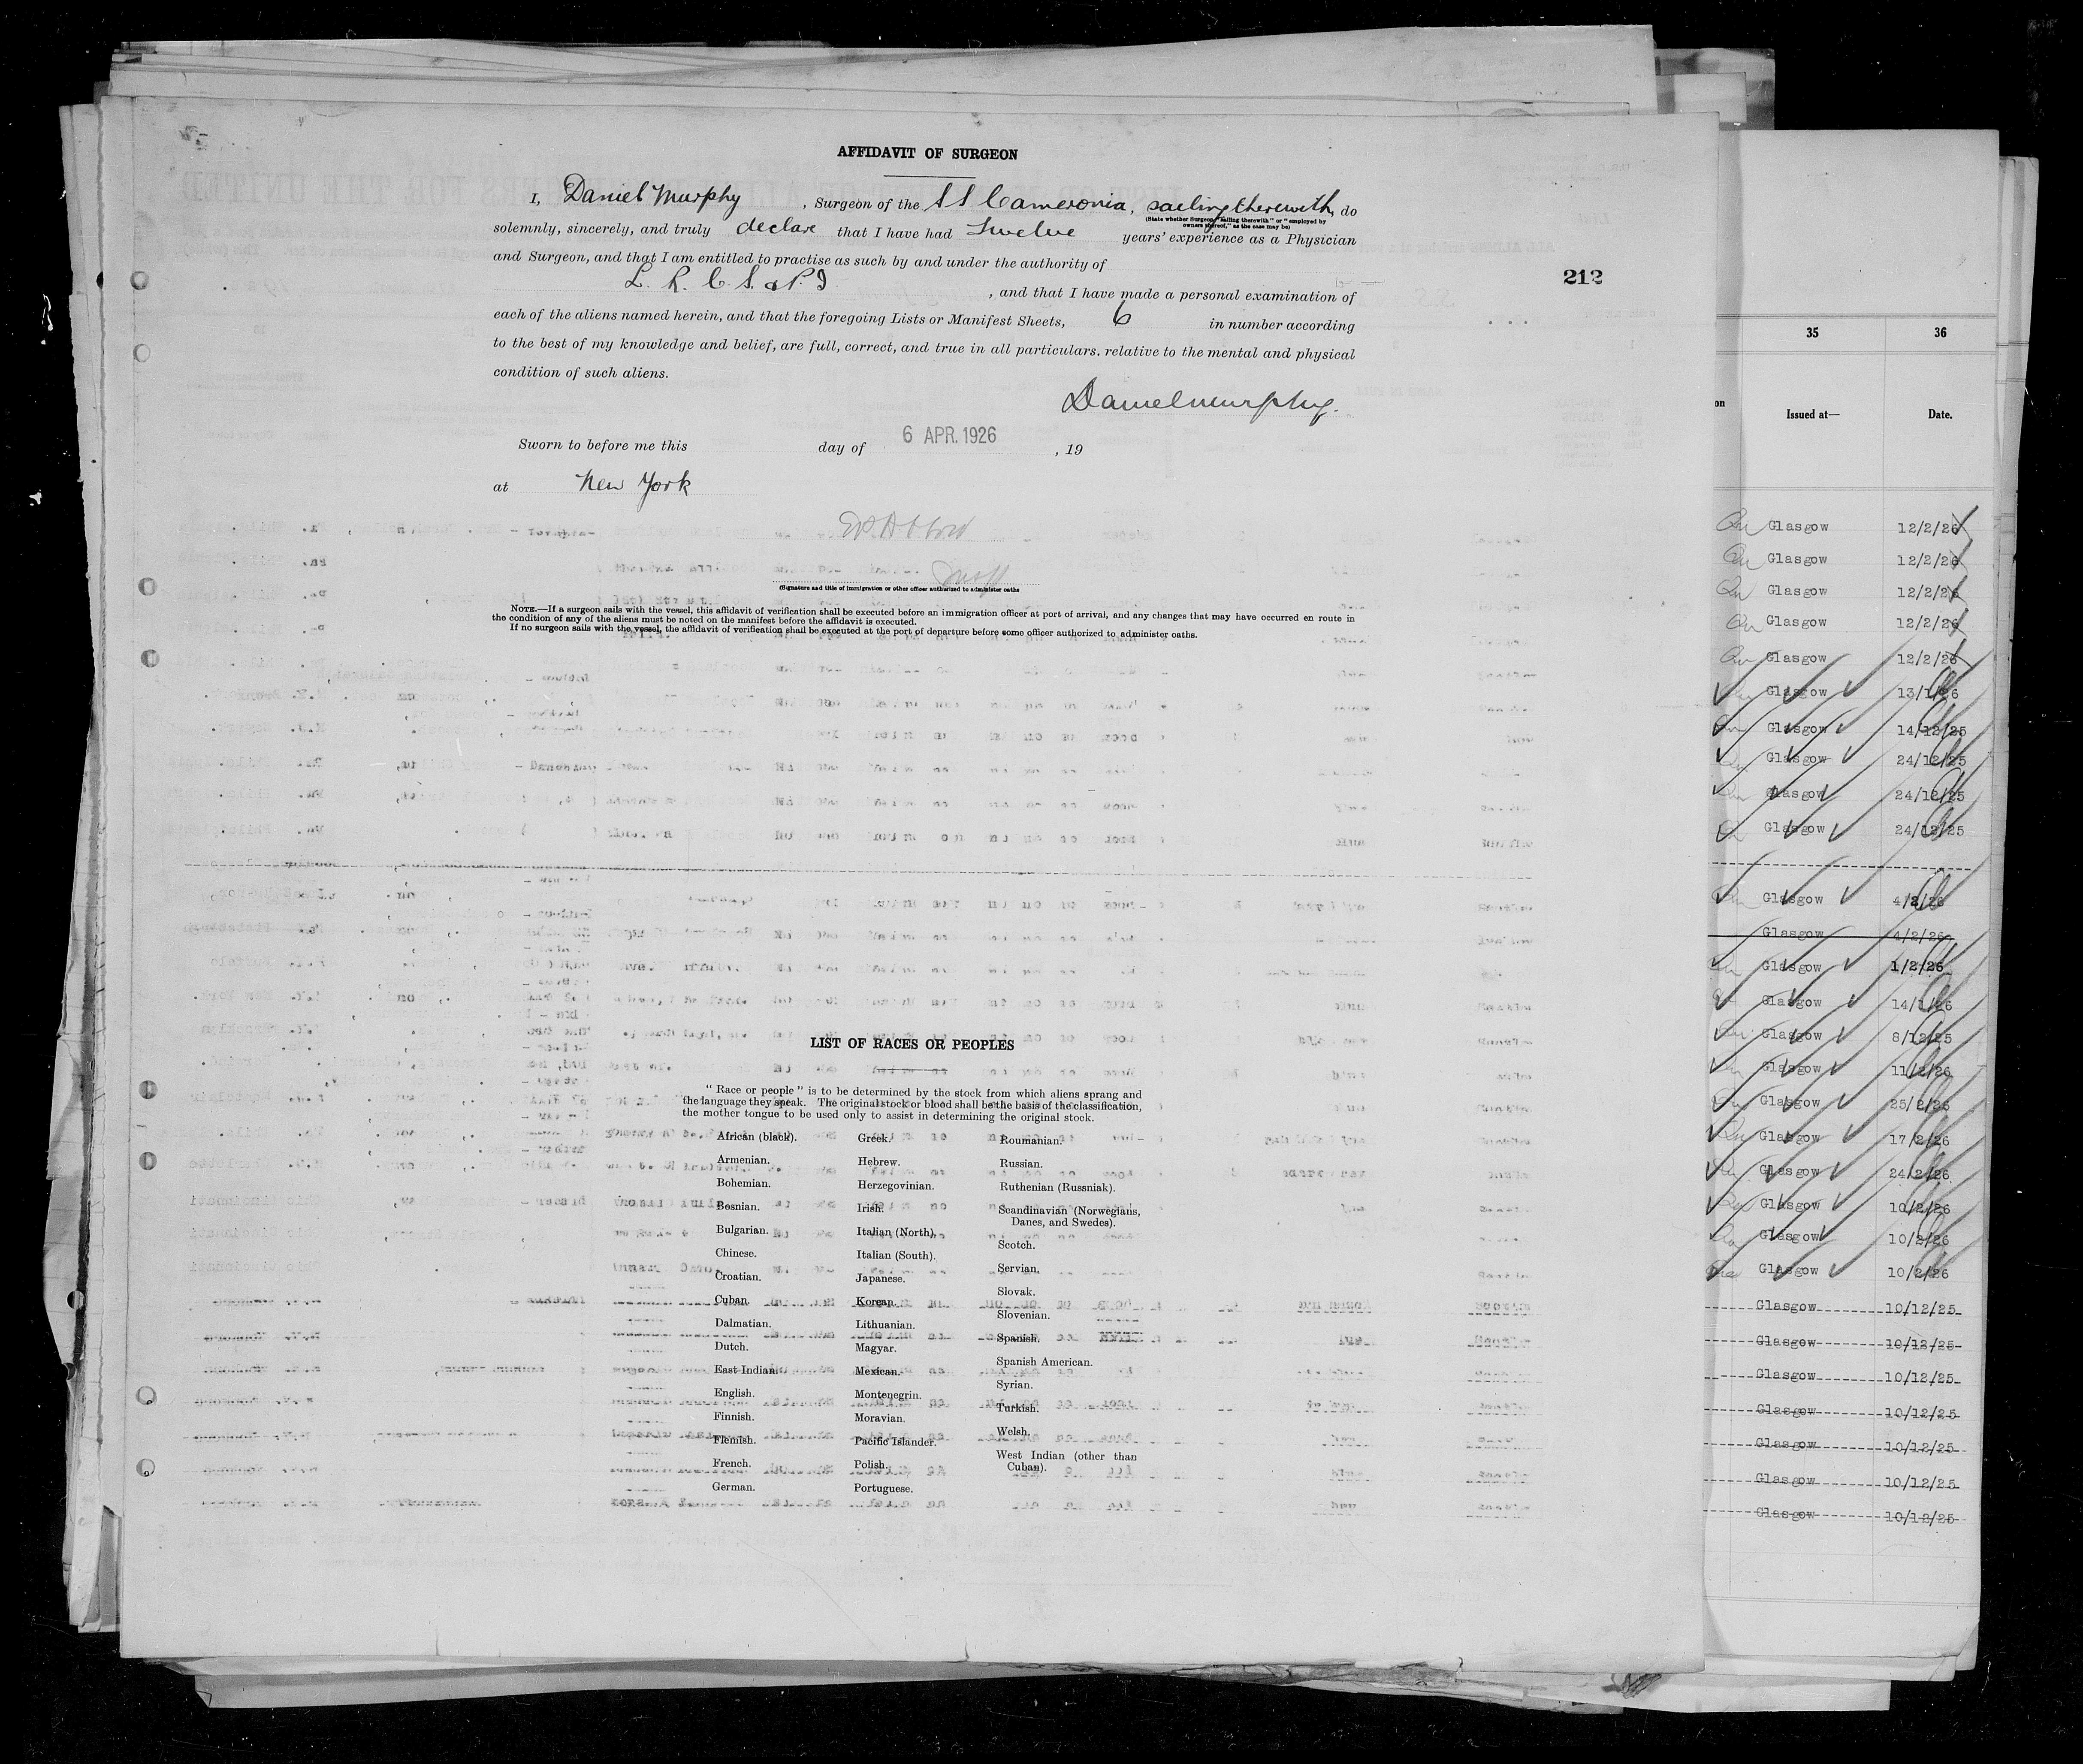 AFFIDAVIT OF SURGEON
I, Daniel Murphy, Surgeon of the SS Cameronia, sailing therewith, do
(State whether Surgeon "sailing therewith" or "employed by
owners thereof," as the case may be)
solemnly, sincerely, and truly declare that I have had Twelve years' experience as a Physician
and Surgeon, and that I am entitled to practise as such by and under the authority of
L. R. C. S. & P. I , and that I have made a personal examination of
212
each of the aliens named herein, and that the foregoing Lists or Manifest Sheets, 6 in number according
to the best of my knowledge and belief, are full, correct, and true in all particulars. relative to the mental and physical
condition of such aliens.
Daniel Murphy.
Sworn to before me this day of 6 APR. 1926 , 19
at New York
(Signature and title of immigration or other officer authorized to administer oaths
NOTE.—If a surgeon sails with the vessel, this affidavit of verification shall be executed before an immigration officer at port of arrival, and any changes that may have occurred en route in
the condition of any of the aliens must be noted on the manifest before the affidavit is executed.
If no surgeon sails with the vessel, the affidavit of verification shall be executed at the port of departure before some officer authorized to administer oaths.
LIST OF RACES OR PEOPLES
"Race or people" is to be determined by the stock from which aliens sprang and
the language they speak. The original stock or blood shall be the basis of the classification,
the mother tongue to be used only to assist in determining the original stock.
African (black).
Armenian.
Bohemian.
Bosnian.
Bulgarian.
Chinese.
Croatian.
Cuban.
Dalmatian.
Dutch.
East Indian.
English.
Finnish.
Flemish.
French.
German.
Greek.
Hebrew.
Herzegovinian.
Irish.
Italian (North).
Italian (South).
Japanese.
Korean.
Lithuanian.
Magyar.
Mexican.
Montenegrin.
Moravian.
Pacific Islander.
Polish.
Portuguese.
Roumanian.
Russian.
Ruthenian (Russniak).
Scandinavian (Norwegians,
Danes, and Swedes).
Scotch.
Servian.
Slovak.
Slovenian.
Spanish.
Spanish American.
Syrian.
Turkish.
Welsh.
West Indian (other than
Cuban).
35 36
on Issued at— Date.
Glasgow 12/2/26
Glasgow 12/2/26
Glasgow 12/2/26
Glasgow 12/2/26
Glasgow 12/2/26
Glasgow 13/1/26
Glasgow 14/12/25
Glasgow 24/12/25
Glasgow 24/12/25
Glasgow 24/12/25
Glasgow 4/2/26
Glasgow 4/2/26
Glasgow 1/2/26
Glasgow 14/1/26
Glasgow 8/12/25
Glasgow 11/2/26
Glasgow 25/2/26
Glasgow 17/2/26
Glasgow 24/2/26
Glasgow 10/2/26
Glasgow 10/2/26
Glasgow 10/2/26
Glasgow 10/12/25
Glasgow 10/12/25
Glasgow 10/12/25
Glasgow 10/12/25
Glasgow 10/12/25
Glasgow 10/12/25
Glasgow 10/12/25